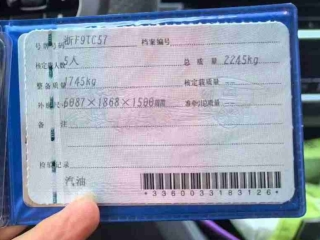 号牌号码 浙F9TC57 档案编号
核定载人数 5人 总质量 2245kg
整备质量 1745kg 核定载质量
5087×1868×1500
备注
检验记录
汽油
*3360033183126*